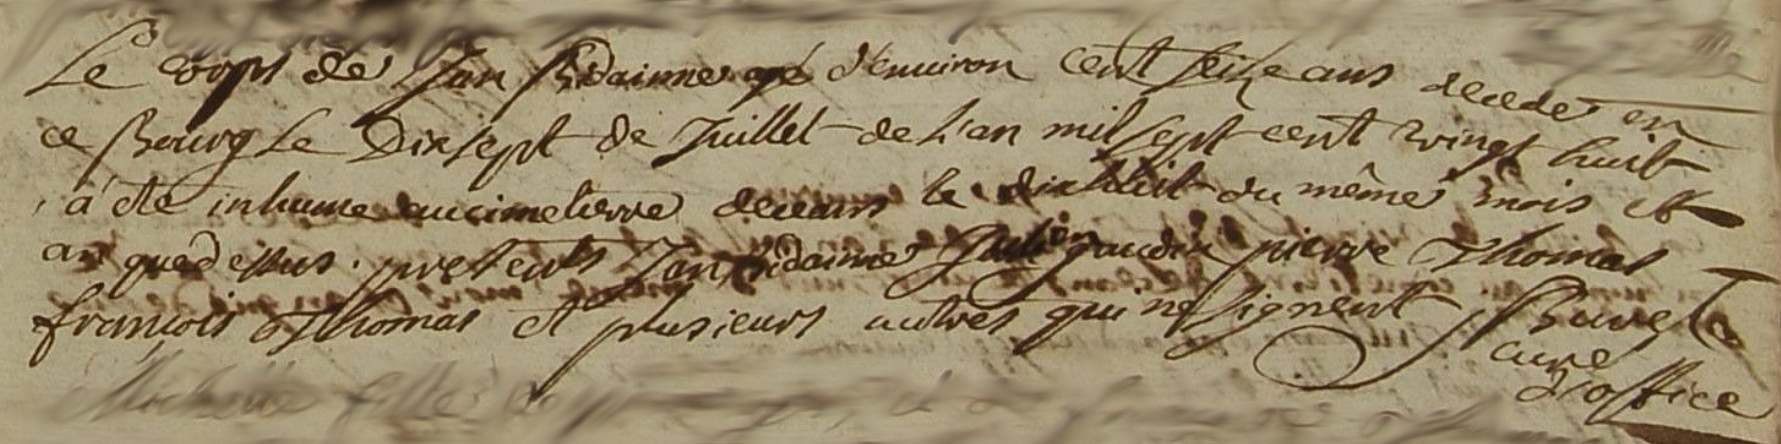 Le corps de Jan Bidainne agé d'enuiron cent seize ans decede en
ce Bourg Le Dix sept de Juillet de L'an mil sept cent vingt huit
a été inhumé au cimetierre deceans le dix huit du même mois et
an que dessus. presents Jan Bidainne Julien gaudin pierre Thomas
françois Thomas et plusieurs autres qui ne signent
cure
d'office